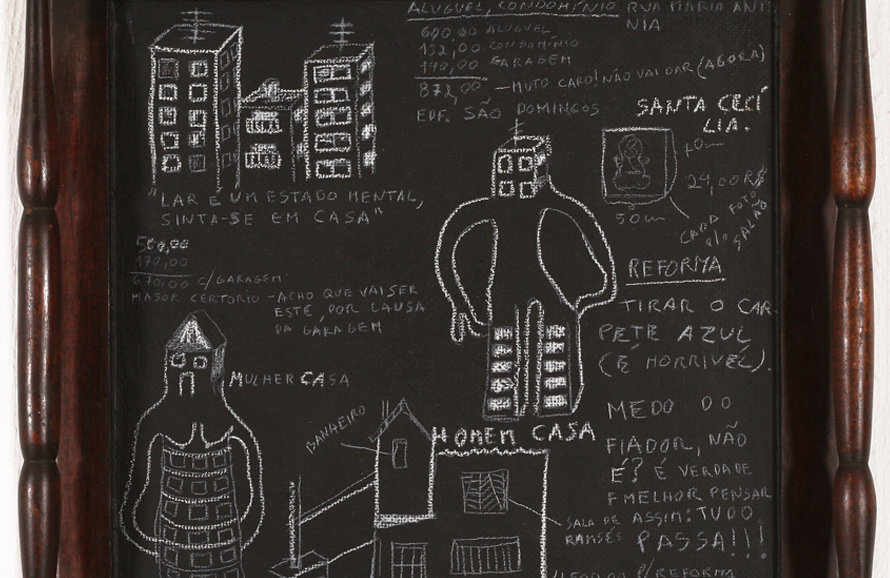 ALUGUEL, CONDOMÍNIO RUA MARIA ANTÔ
NIA
600,00 ALUGUEL
132,00 CONDOMÍNIO
140,00 GARAGEM
872,00 — MUTO CARO! NÃO VAI DAR (AGORA)
EDF. SÃO DOMINGOS
SANTA CECÍ
LIA.
24,00R$
50cm
CADA FOTO
P/O SALÃO
"LAR É UM ESTADO MENTAL,
SINTA-SE EM CASA"
500,00
170,00
670,00 C/GARAGEM
MAJOR CERTORIO - ACHO QUE VAI SER
ESTE, POR CAUSA
DA GARAGEM
REFORMA
TIRAR O CAR-
PETE AZUL
(É HORRIVEL).
MULHER CASA
BANHEIRO
HOMEM CASA
MEDO DO
FIADOR, NÃO
É? É VERDADE
É MELHOR PENSAR
ASSIM: TUDO
PASSA!!!
SALA DE
RAMSÉS
P/REFORMA